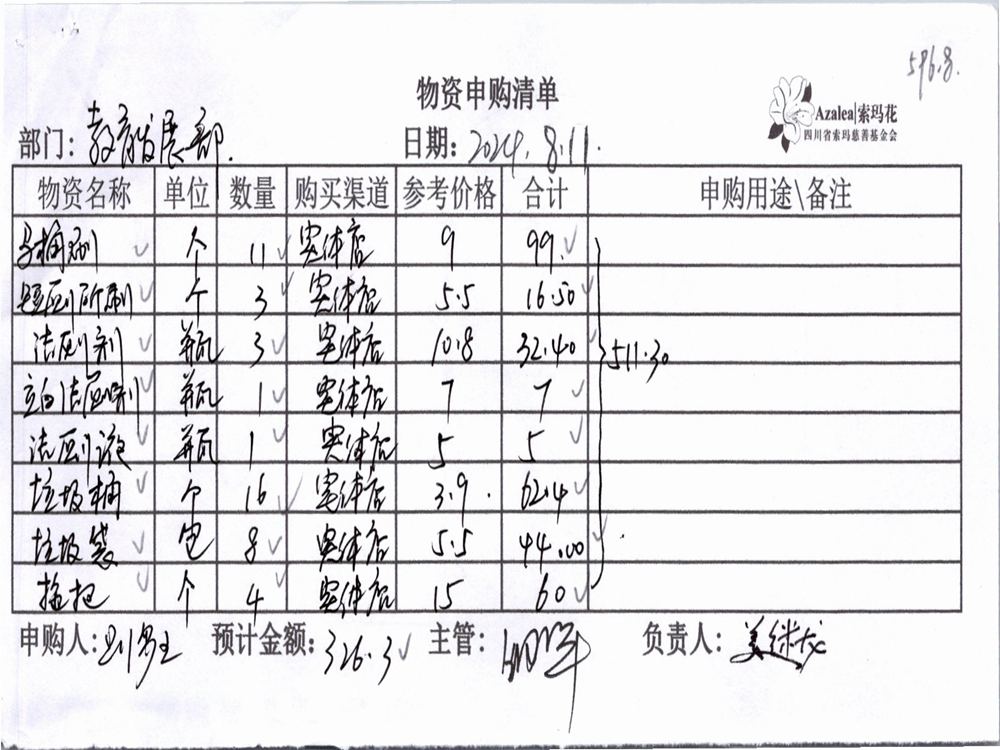 596.8.
物资申购清单
Azalea|索玛花
四川省索玛慈善基金会
部门：教育发展部. 日期：2024.8.11.
物资名称 单位 数量 购买渠道 参考价格 合计 申购用途\备注
马桶刷 个 11 实体店 9 99
个 3 实体店 5.5 16.50
洁厕剂 瓶 3 实体店 10.8 32.40 511.30
瓶 1 实体店 7 7
洁厕液 瓶 1 实体店 5 5
垃圾桶 个 16 实体店 3.9. 62.4
垃圾袋 包 8 实体店 5.5 44.00
拖把 个 4 实体店 15 60
申购人： 预计金额：326.3 主管： 负责人：